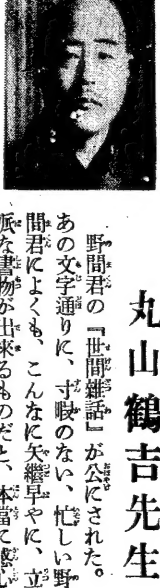 丸山鶴吉先生
野間君の『世間雑話』が公にされた。
あの文字通りに、寸暇のない、忙しい野
間君によくも、こんなに矢繼早やに、立
派な書物が出來るものだと、本當に感心